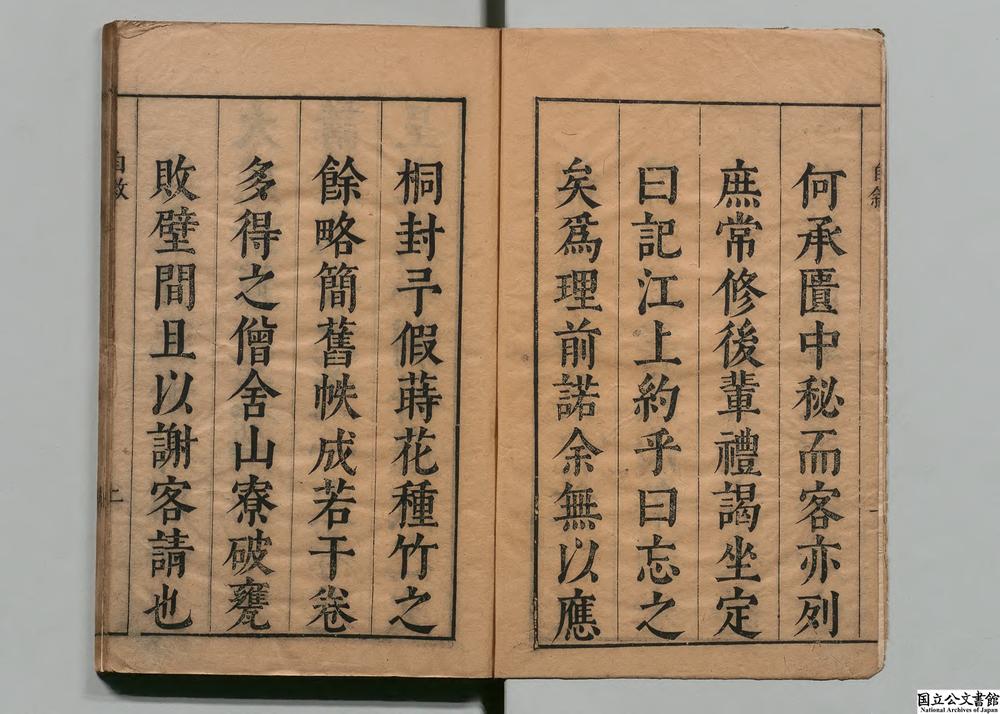 何承匱中秘而客亦列
庶常修後輩禮謁坐定
曰記江上約乎曰忘之
矣為理前諾余無以應
桐封予假蒔花種竹之
餘略簡舊帙成若干卷
多得之僧舍山寮破甕
敗壁間且以謝客請也
自敘
上
国立公文書館
National Archives of Japan